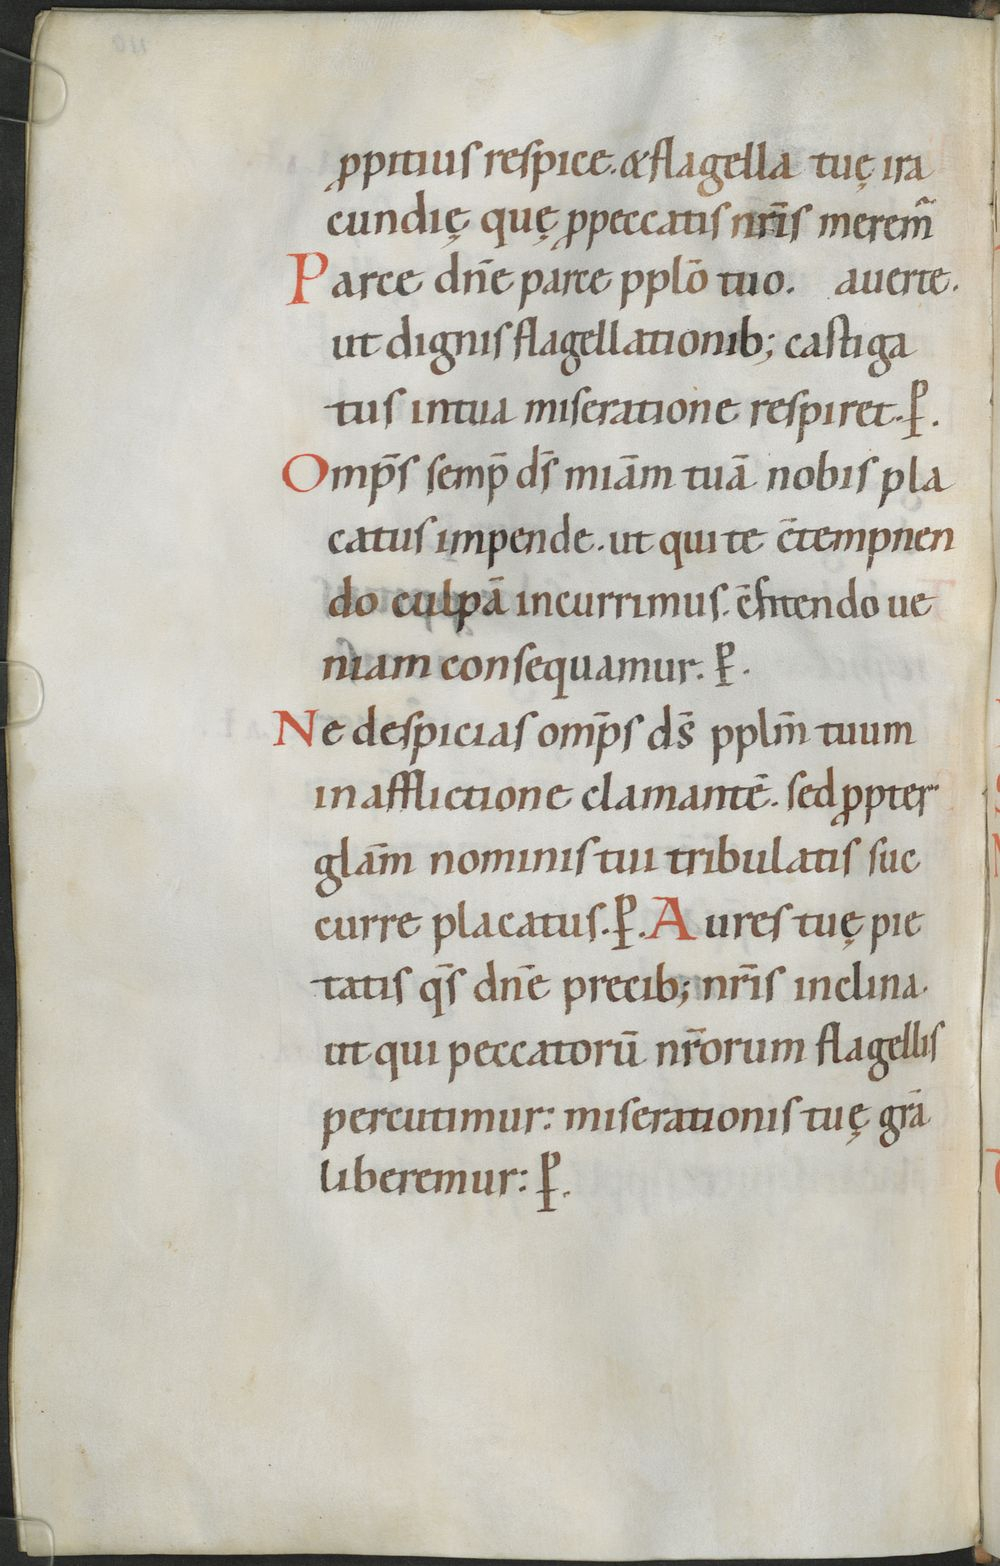 ꝓpitius respice. & flagella tuę ira
cundię quę ꝓpeccatis nr̄is merem̃
Parce dn̄e parce pplō tuo. auerte.
ut dignis flagellationib; castiga
tus intua miseratione respiret. P̱.
Omp̄s semp̄ ds̄ miām tuā nobis pla
catus impende. ut qui te c̄tempnen
do culpā incurrimus. c̄fitendo ue
niam consequamur. P̱.
Ne despicias omp̄s ds̄ pplm̄ tuum
in afflictione clamantē. sed ꝓpter
glām nominis tui tribulatis suc
curre placatus. P̱. Aures tuę pie
tatis qs̄ dn̄e precib; nr̄is inclina.
ut qui peccatorū nr̄orum flagellis
percutimur: miserationis tuę grā
liberemur: P̱.